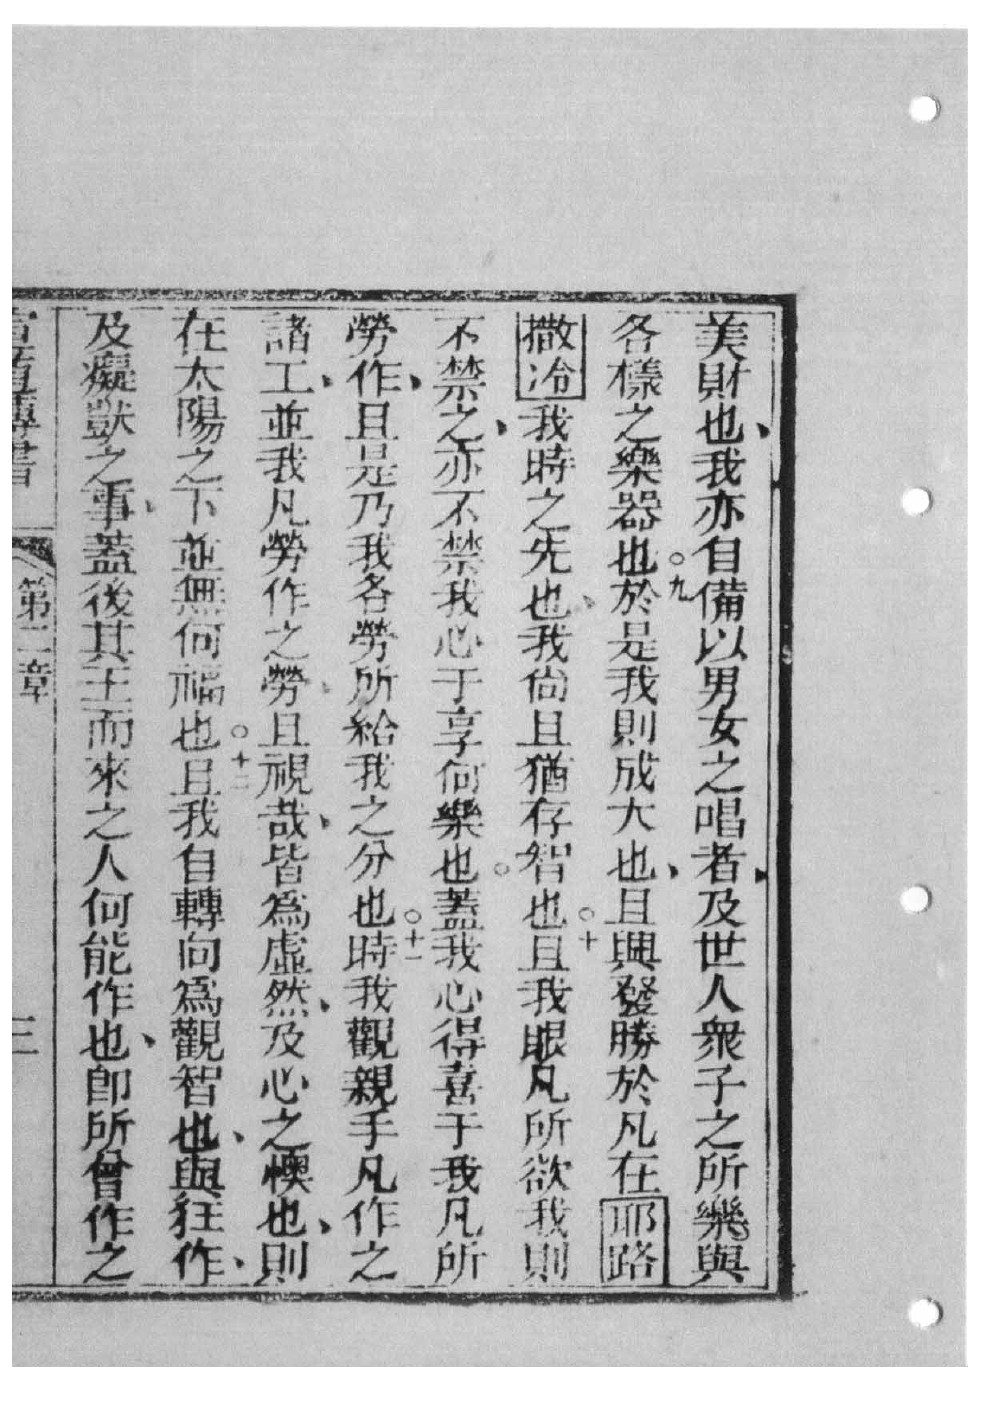 美財也、我亦自備以男女之唱者、及世人衆子之所樂與
各樣之樂器也○九於是我則成大也、且興發勝於凡在耶路
撒冷我時之先也、我尙且猶存智也○十且我眼凡所欲我則
不禁之、亦不禁我心于享何樂也○蓋我心得喜于我凡所
勞作、且是乃我各勞所給我之分也○十一時我觀親手凡作之
諸工、並我凡勞作之勞、且視哉、皆爲虛然、及心之懊也、則
在太陽之下並無何福也○十二且我自轉向爲觀智也、與狂作、
及癡獃之事、蓋後其王而來之人何能作也、卽所曾作之
書
第二章
三